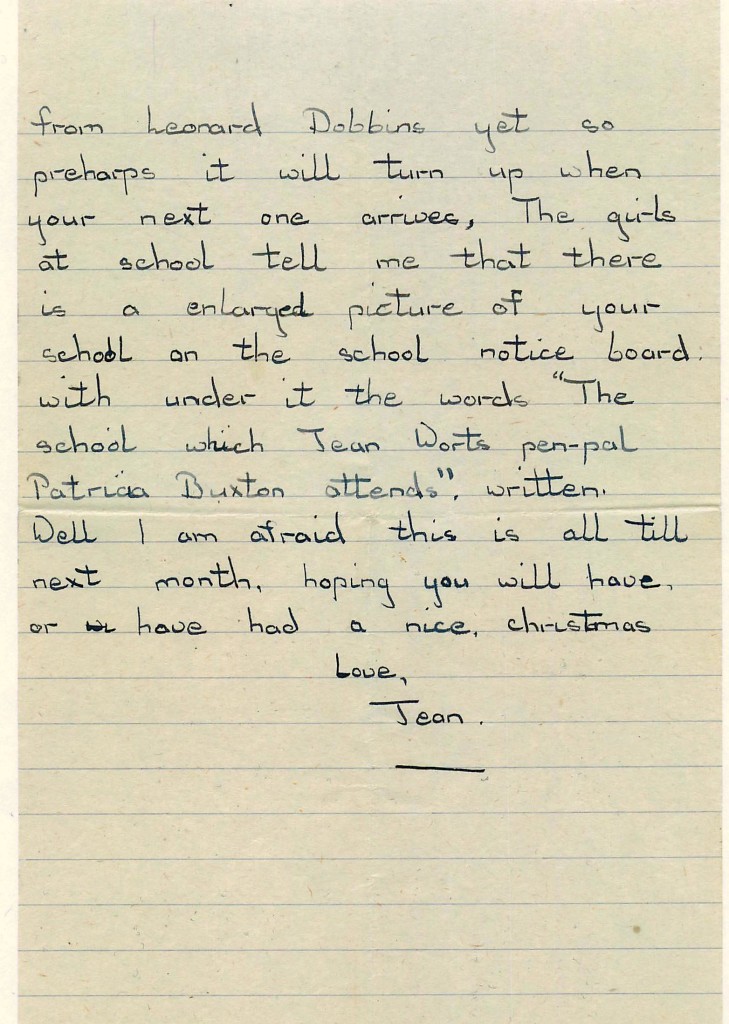 from Leonard Dobbins yet so
preharps it will turn up when
your next one arrives, The girls
at school tell me that there
is a enlarged picture of your
school on the school notice board.
with under it the words "The
school which Jean Worts pen-pal
Patricia Buxton attends", written.
Well I am afraid this is all till
next month, hoping you will have,
or have had a nice, christmas
Love,
Jean.